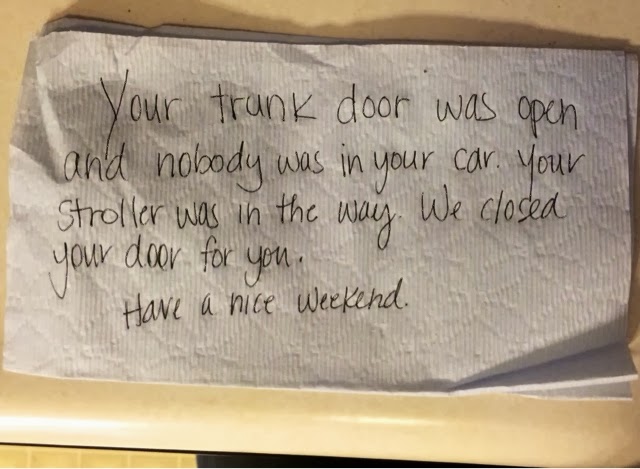 Your trunk door was open
and nobody was in your car. Your
stroller was in the way. We closed
your door for you.
Have a nice weekend.